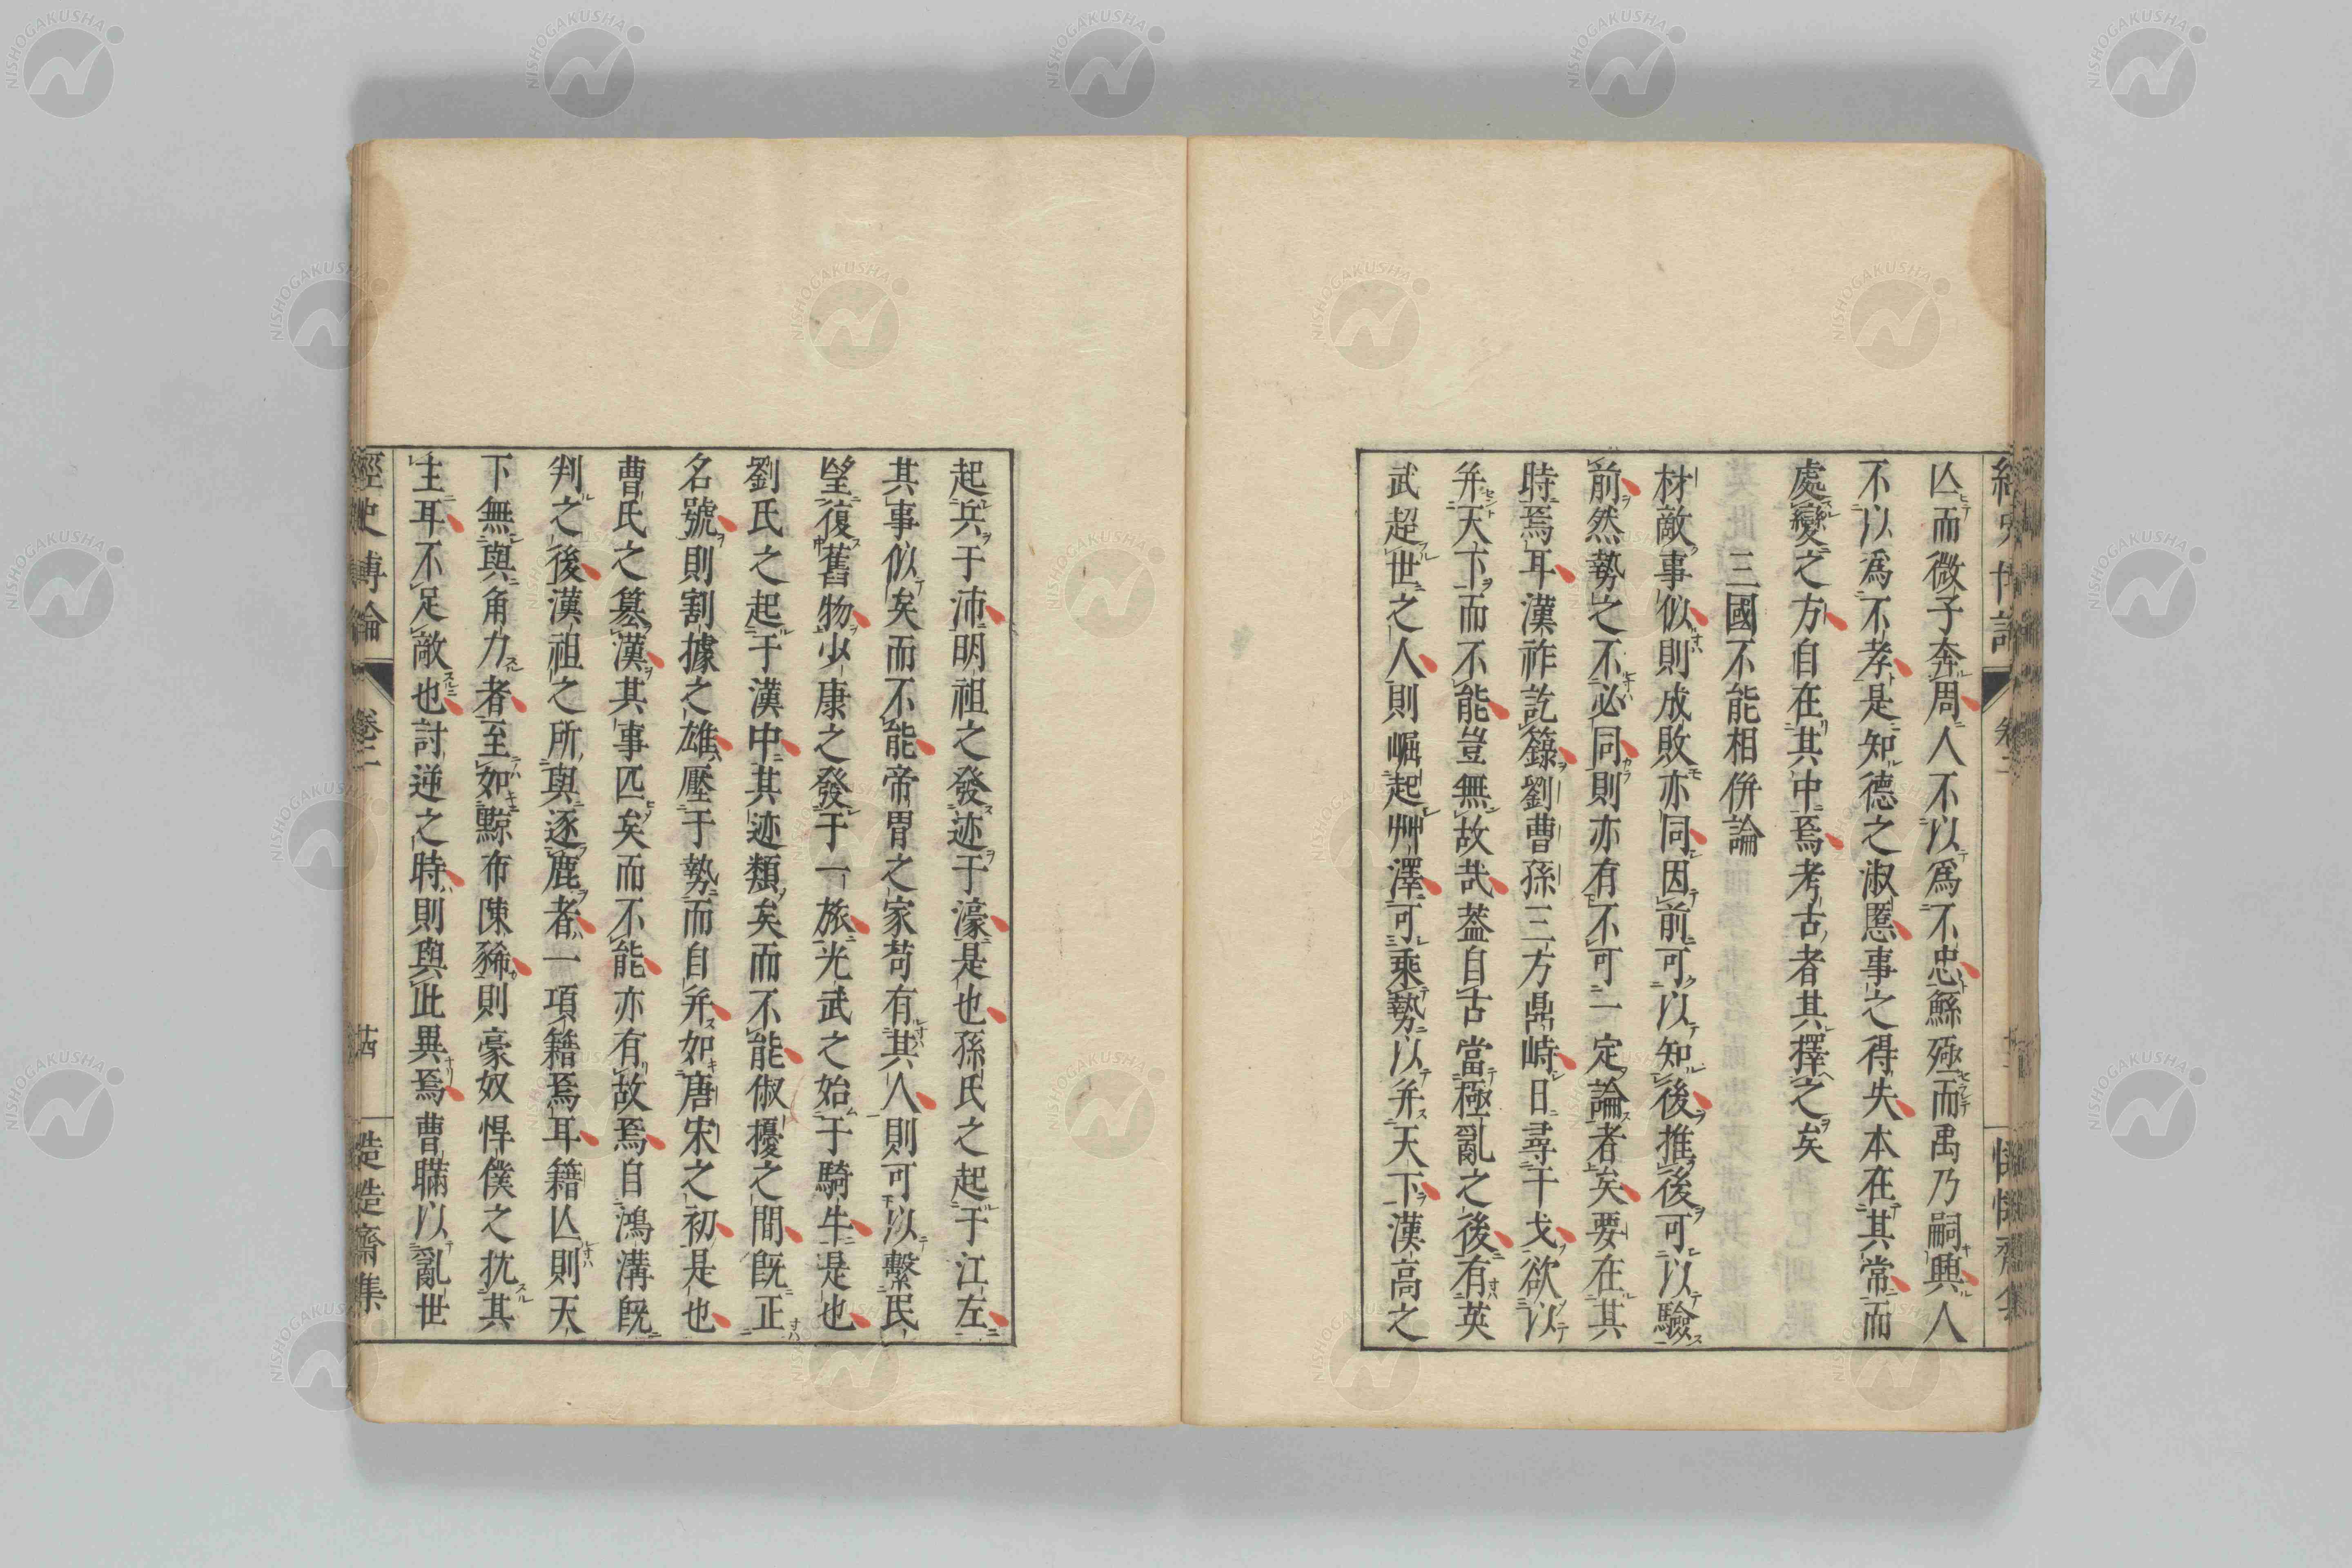 亾而微子奔周人不以爲不忠鯀殛而禹乃嗣興人
不以爲不孝是知德之淑慝事之得失本在其常而
處變之方自在其中焉考古者其擇之矣
三國不能相併論
材敵事似則成敗亦同因前可以知後推後可以驗
前然勢之不必同則亦有不可一定論者矣要在其
時焉耳漢祚訖籙劉曹孫三方鼎峙日尋干戈欲以
弁天下而不能豈無故哉蓋自古當極亂之後有英
武超世之人則崛起艸澤可乘勢以弁天下漢高之
起兵于沛明祖之發迹于濠是也孫氏之起于江左
其事似矣而不能帝冑之家苟有其人則可以繫民
望復舊物少康之發于一旅光武之始于騎牛是也
劉氏之起于漢中其迹類矣而不能俶擾之間既正
名號則割據之雄壓于勢而自弁如唐宋之初是也
曹氏之簒漢其事匹矣而不能亦有故焉自鴻溝既
判之後漢祖之所與逐鹿者一項籍焉耳籍亾則天
下無與角力者至如黥布陳豨則豪奴悍僕之抗其
主耳不足敵也討逆之時則與此異焉曹瞞以亂世
經史博論
卷二
廿四
慥慥齋集
NISHOGAKUSHA